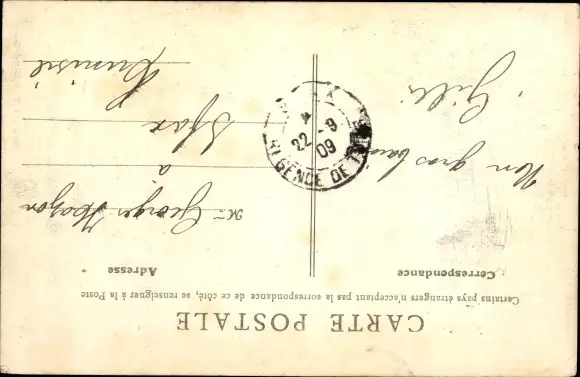 CARTE POSTALE
Certains pays étrangers n'acceptant pas la correspondance de ce côté, se renseigner à la Poste
Correspondance
Adresse
Un gros baiser
Gili
Mr George
à
Sfax
Tunisie
22 - 9
09
RÉGENCE DE